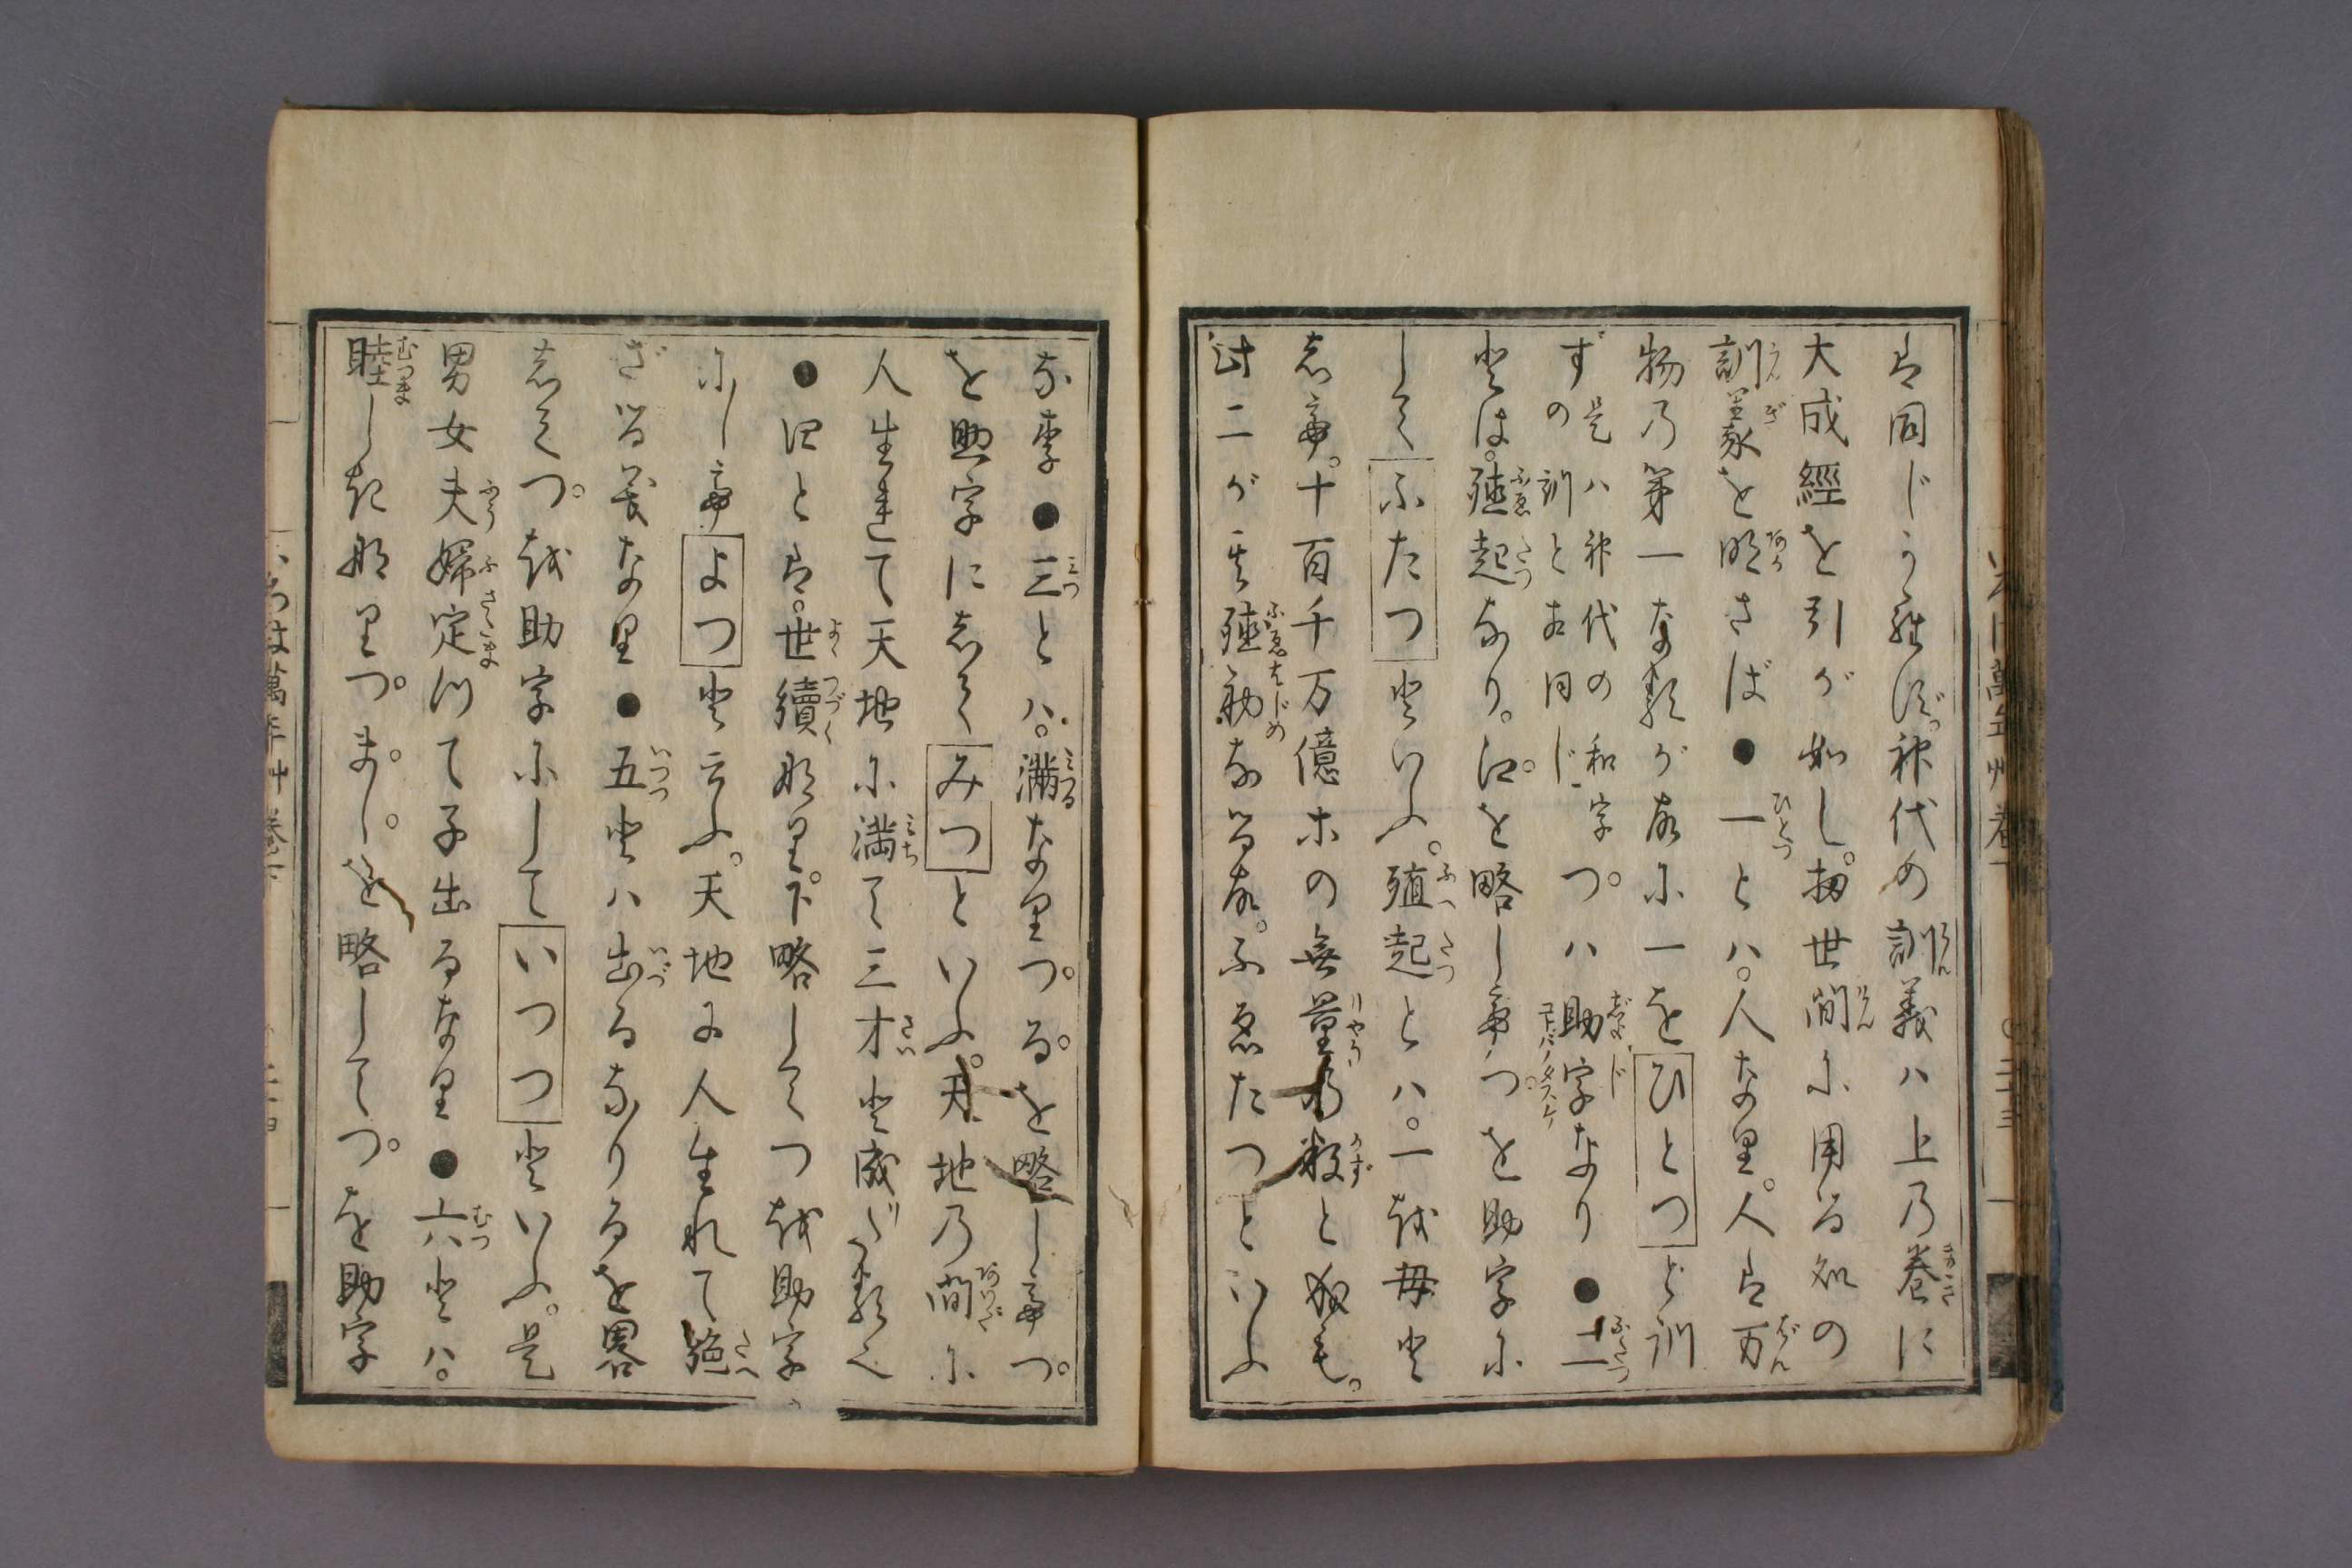 は同じからず。神代の訓義ハ上乃巻に
大成經を引が如し。扨世間に用る処の
訓義を明さば●一とハ。人な里。人は万
物乃第一なる類が故に一をひとつと訓
ず是ハ神代の和字の訓とお同じつ。ハ助字なり●二
とは。殖起なり。江を略して。つを助字に
してふたつといふ。殖起とハ。一を母と
して。十百千万億ホの無量の数と成も。
此二が其殖初なる故。ふゑたつといふ
な李●三とハ。満な里つ。る。を略して。つ。
を助字にしてみつといふ。天地乃間に
人生れて天地に満て三才と成が類へ
●四とは。世續な里。下略してつを助字
にしてよつと云ふ。天地に人生れて絶
ざる義な里●五とハ出るなりるを畧
してつ。を助字にしていつつといふ。是
男女夫婦定りて子出るな里●六とハ。
睦しきな里つ。ま。し。を略してつ。を助字